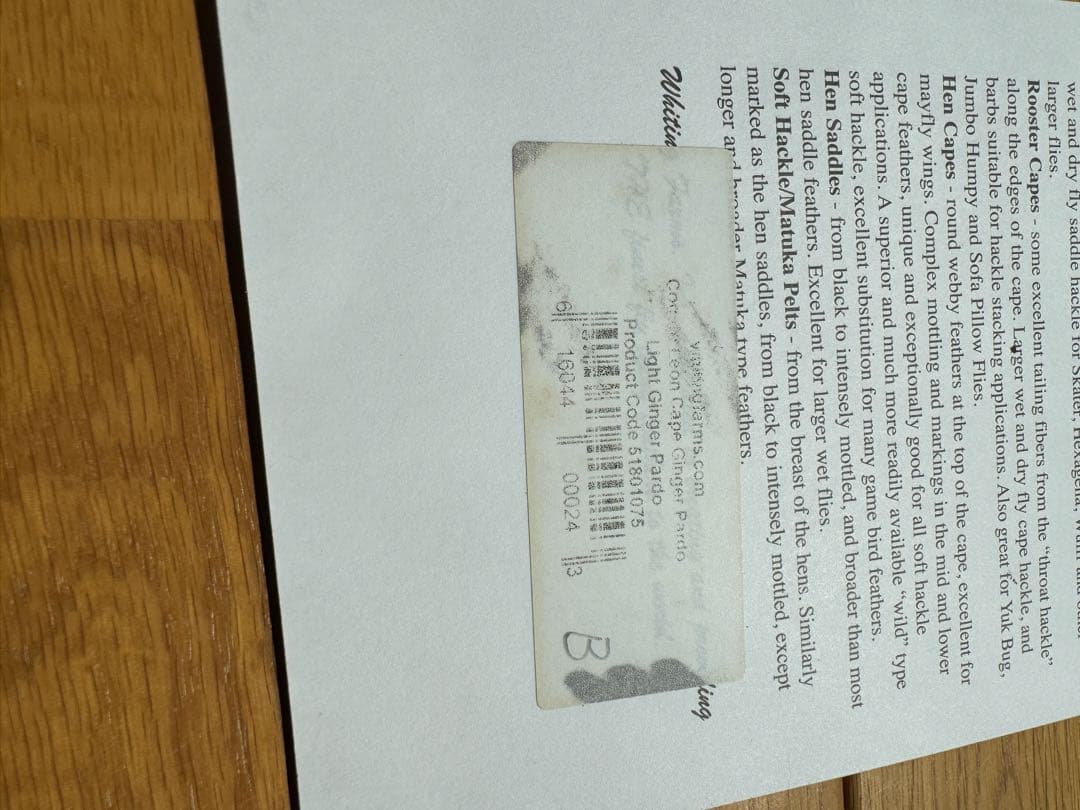 wet and dry fly saddle hackle for Skater, Hexagenia,
larger flies.
Rooster Capes - some excellent tailing fibers from the “throat hackle”
along the edges of the cape. Larger wet and dry fly cape hackle, and
barbs suitable for hackle stacking applications. Also great for Yuk Bug,
Jumbo Humpy and Sofa Pillow Flies.
Hen Capes - round webby feathers at the top of the cape, excellent for
mayfly wings. Complex mottling and markings in the mid and lower
cape feathers, unique and exceptionally good for all soft hackle
applications. A superior and much more readily available “wild” type
soft hackle, excellent substitution for many game bird feathers.
Hen Saddles - from black to intensely mottled, and broader than most
hen saddle feathers. Excellent for larger wet flies.
Soft Hackle/Matuka Pelts - from the breast of the hens. Similarly
marked as the hen saddles, from black to intensely mottled, except
longer and broader Matuka type feathers.
Whitin ing
Cape Ginger Pardo
Light Ginger Pardo
Product Code 51801075
6 16044 00024 3
B